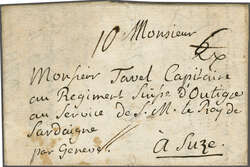 10 Monsieur
Monsieur Tavel Capitaine
au Regiment Suisse D'Outigue
au Service de S. M. le Roy de
Sardaigne
par Geneve
à Suze.